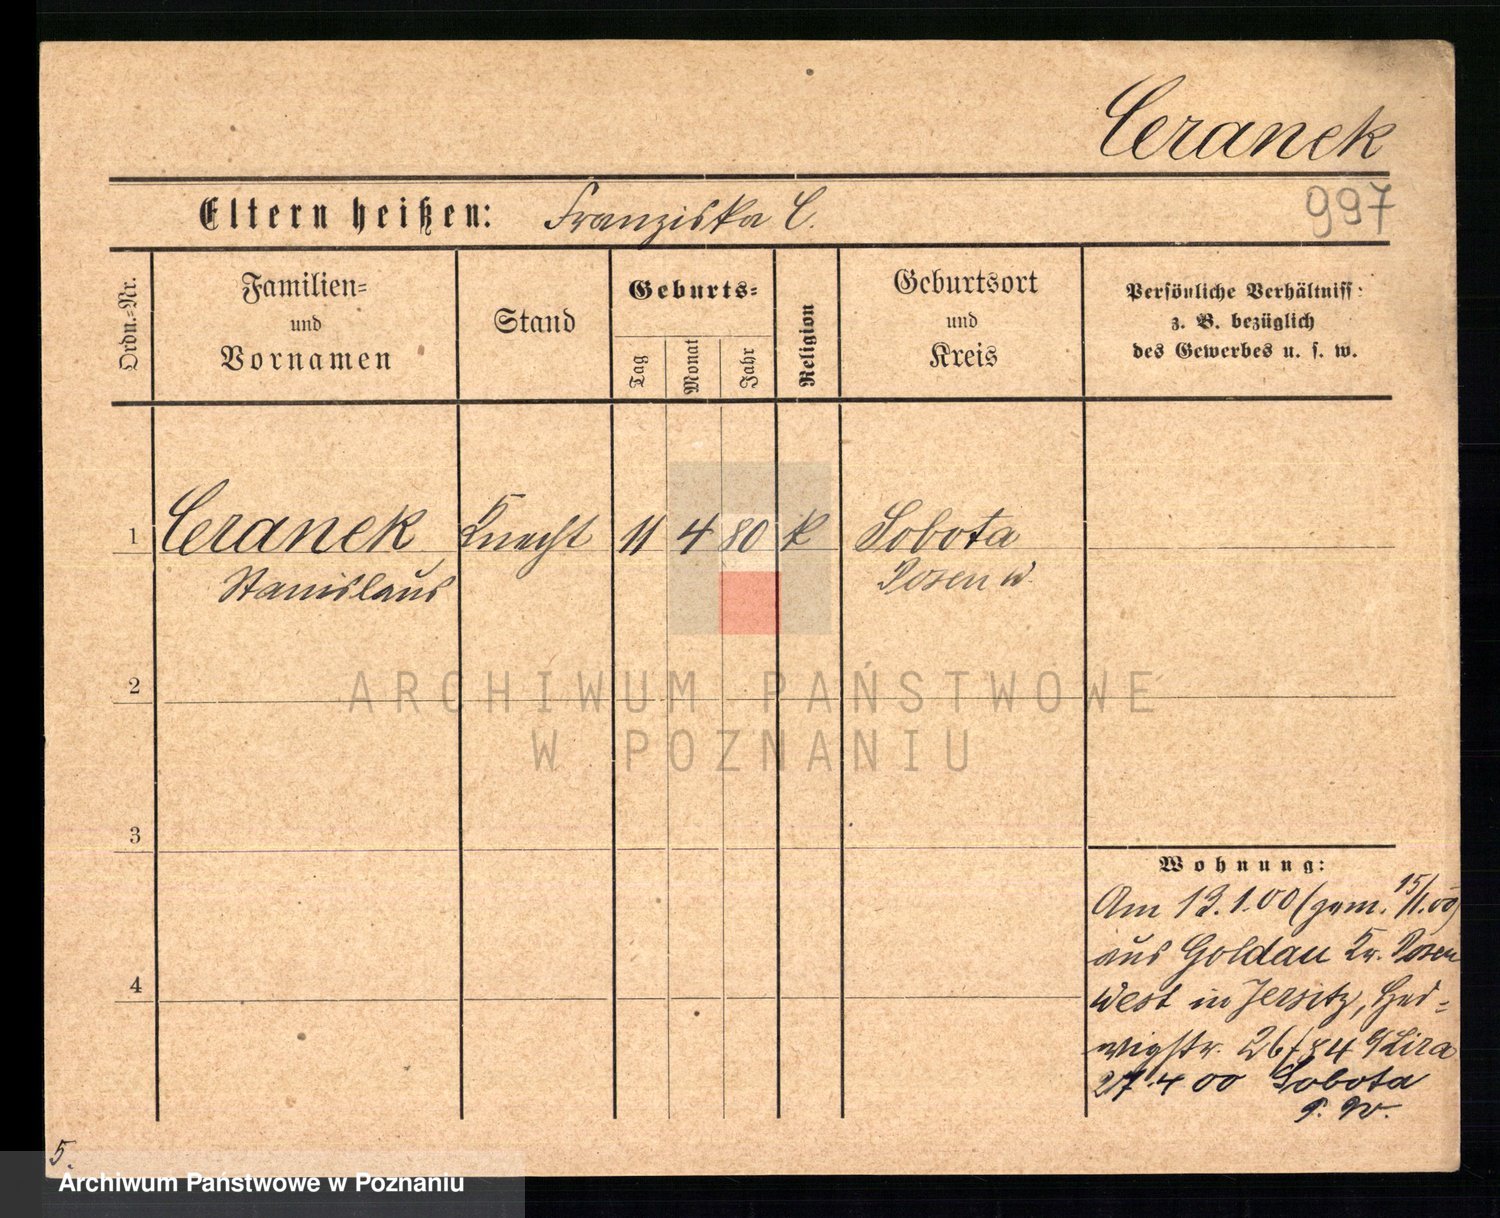 Ceranek
Eltern heißen: Franziska C.
997
Ordn.-Nr.
Familien-
und
Vornamen
Stand
Geburts-
Tag
Monat
Jahr
Religion
Geburtsort
und
Kreis
Persönliche Verhältniss:
z. B. bezüglich
des Gewerbes u. s. w.
1 Ceranek Knecht 11 4 80 k Sobota
Stanislaus Posen W.
2
ARCHIWUM PAŃSTWOWE
W POZNANIU
3
Wohnung:
Am 13.1.00 (gem. 15/1.00)
aus Goldau Kr. Posen
West in Jersitz, Hed-
wigstr. 26/84 b/Lira
27.4 00 Sobota
P. W.
4
5.
Archiwum Państwowe w Poznaniu